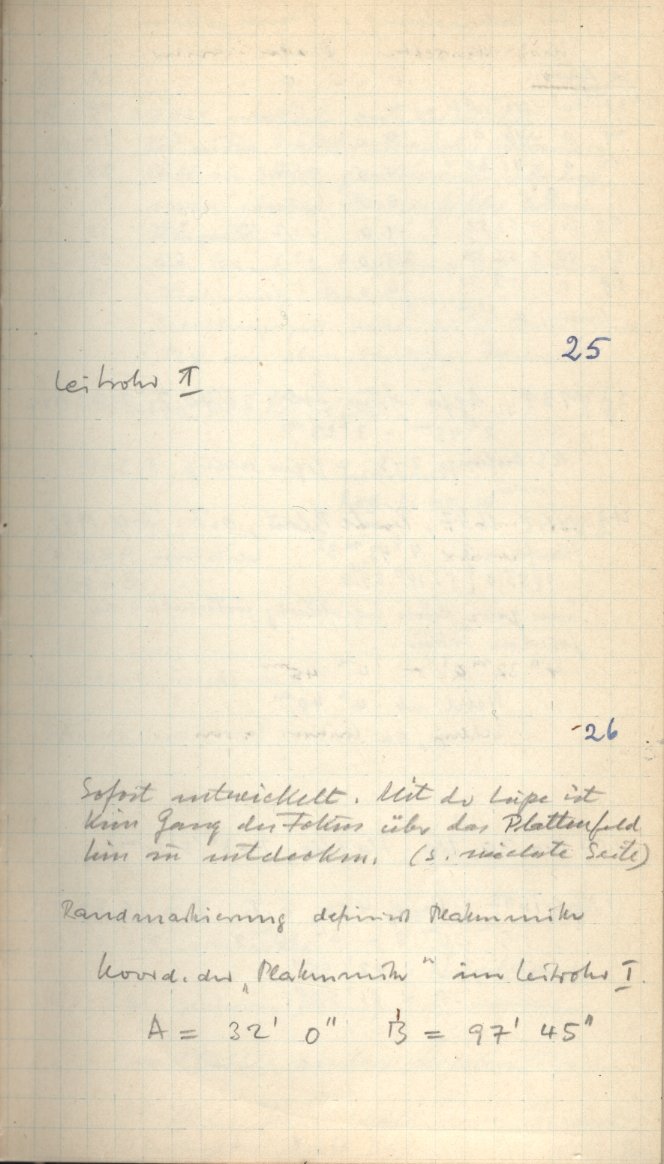 25
Leitrohr II
26
Sofort entwickelt. Mit der Lupe ist
kein Gang des Fokus über das Plattenfeld
hin zu entdecken. (s. nächste Seite)
Randmarkierung definiert Plattenmitte
Koord. der „Plattenmitte“ im Leitrohr I.
A = 32' 0" B = 97' 45"